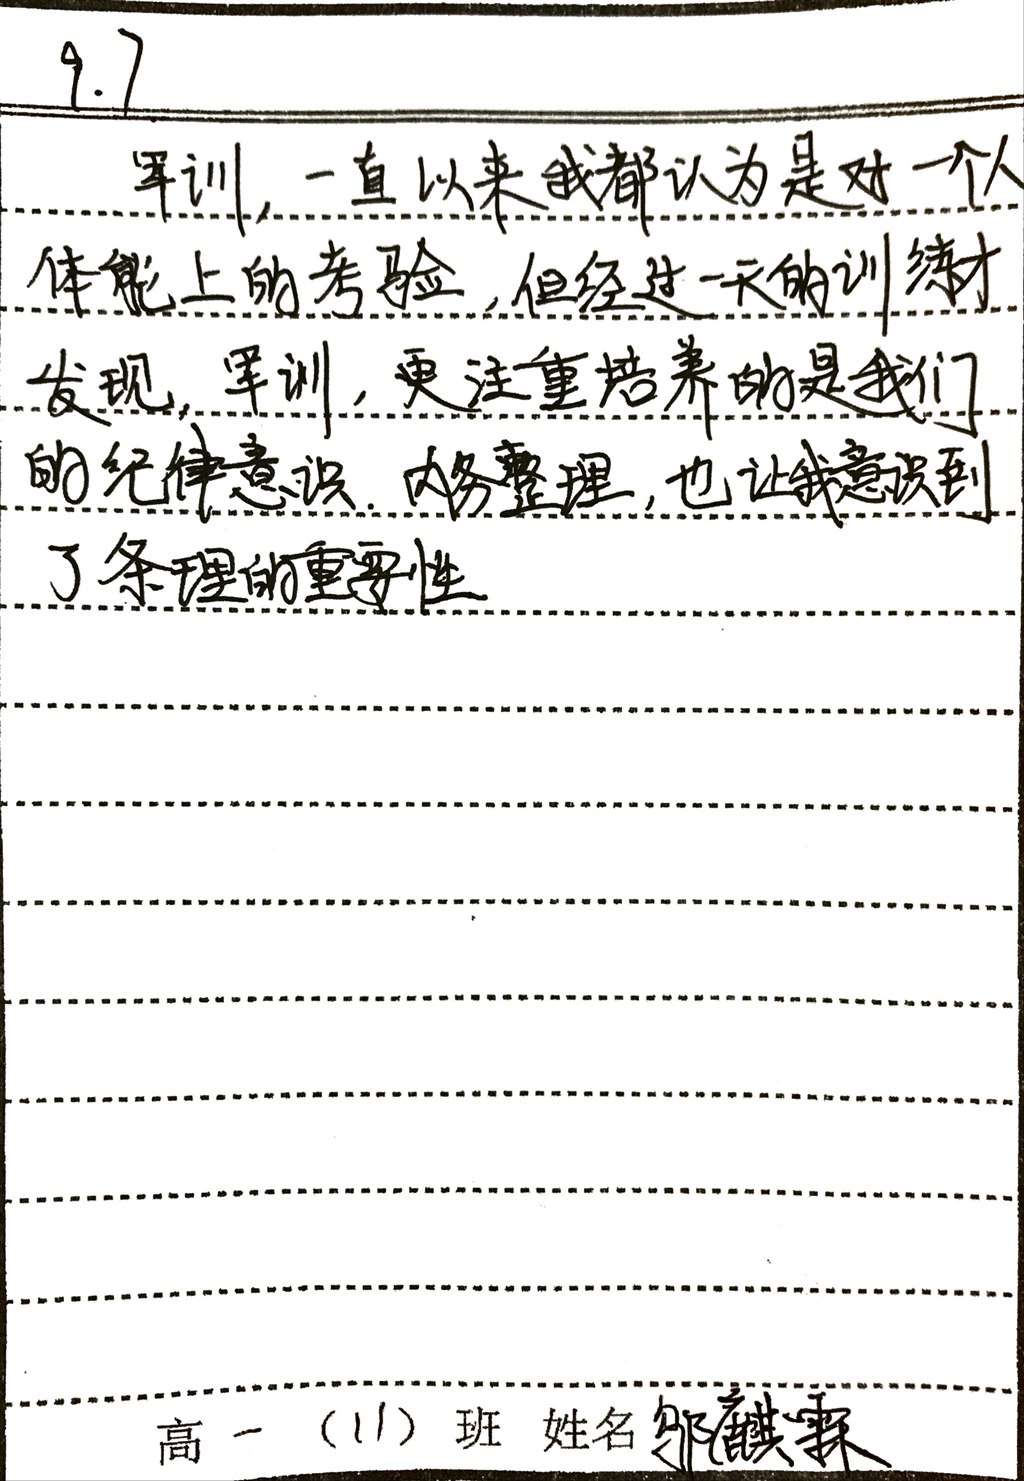 9.7
军训，一直以来我都认为是对一个人
体能上的考验，但经过一天的训练才
发现，军训，更注重培养的是我们
的纪律意识．内务整理，也让我意识到
了条理的重要性
高一（11）班 姓名 邬麒霖